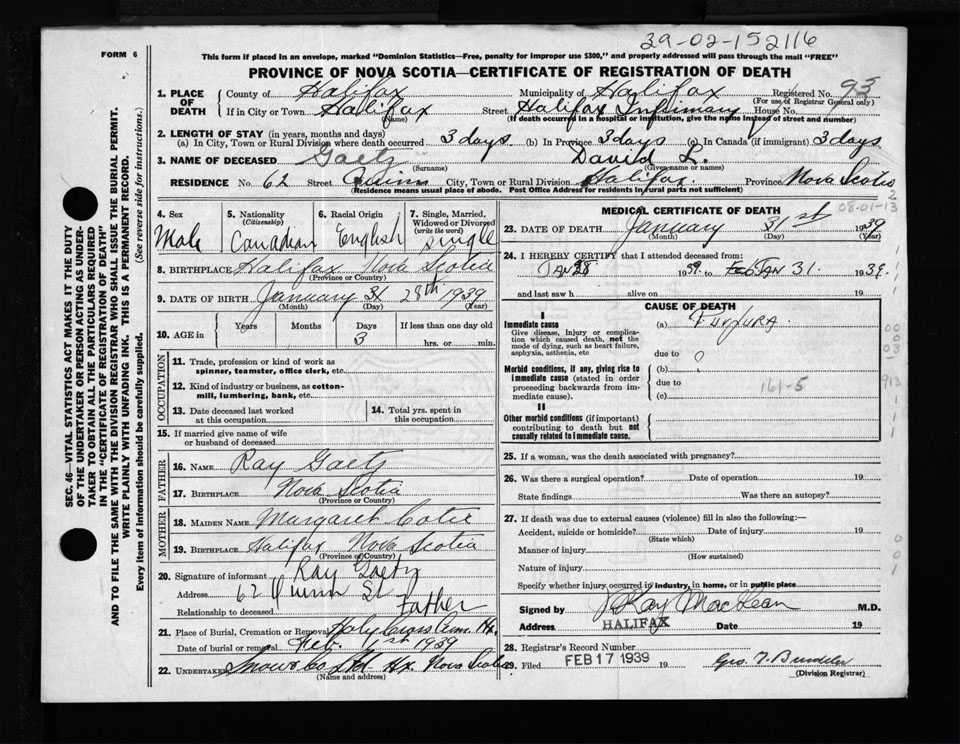 39-02-152116
FORM 6
This form if placed in an envelope, marked "Dominion Statistics—Free, penalty for improper use $300," and properly addressed will pass through the mail "FREE"
PROVINCE OF NOVA SCOTIA—CERTIFICATE OF REGISTRATION OF DEATH
SEC. 46—VITAL STATISTICS ACT MAKES IT THE DUTY
OF THE UNDERTAKER OR PERSON ACTING AS UNDER-
TAKER TO OBTAIN ALL THE PARTICULARS REQUIRED
IN THE "CERTIFICATE OF REGISTRATION OF DEATH"
AND TO FILE THE SAME WITH THE DIVISION REGISTRAR WHO SHALL ISSUE THE BURIAL PERMIT.
WRITE PLAINLY WITH UNFADING INK. THIS IS A PERMANENT RECORD.
Every item of information should be carefully supplied. (See reverse side for instructions.)
1. PLACE OF DEATH County of Halifax Municipality of Halifax Registered No. 93
(For use of Registrar General only)
If in City or Town Halifax (Name) Street Halifax Infirmary House No.
(If death occurred in a hospital or institution, give the name instead of street and number)
2. LENGTH OF STAY (in years, months and days)
(a) In City, Town or Rural Division where death occurred 3 days (b) In Province 3 days (c) In Canada (if immigrant) 3 days
3. NAME OF DECEASED Gaetz David L.
(Surname) (Given name or names)
RESIDENCE No. 62 Street Quinn City, Town or Rural Division Halifax Province Nova Scotia
(Residence means usual place of abode. Post Office Address for residents in rural parts not sufficient)
4. Sex 5. Nationality (Citizenship) 6. Racial Origin 7. Single, Married, Widowed or Divorced (write the word)
Male Canadian English Single
8. BIRTHPLACE Halifax Nova Scotia
(Province or Country)
9. DATE OF BIRTH January 31 28th 1939
(Month) (Day) (Year)
10. AGE in Years Months Days 3 If less than one day old
hrs. or min.
OCCUPATION
11. Trade, profession or kind of work as
spinner, teamster, office clerk, etc.
12. Kind of industry or business, as cotton-
mill, lumbering, bank, etc.
13. Date deceased last worked
at this occupation
14. Total yrs. spent in
this occupation
15. If married give name of wife
or husband of deceased
FATHER
16. NAME Ray Gaetz
17. BIRTHPLACE Nova Scotia
(Province or Country)
MOTHER
18. MAIDEN NAME Margaret
19. BIRTHPLACE Halifax Nova Scotia
(Province or Country)
20. Signature of informant Ray Gaetz
Address 62 Quinn St
Relationship to deceased Father
21. Place of Burial, Cremation or Removal Holy Cross Cem. Hx.
Date of burial or removal Feb. 1st 1939
22. UNDERTAKER Snow & Co Ltd Hx. Nova Scotia
(Name and address)
MEDICAL CERTIFICATE OF DEATH
08-01-13
23. DATE OF DEATH January 31st 1939
(Month) (Day) (Year)
24. I HEREBY CERTIFY that I attended deceased from:
JAN 28 1939. to JAN 31. 1939.
and last saw h alive on 19
CAUSE OF DEATH
I
Immediate cause
Give disease, injury or complica-
tion which caused death, not the
mode of dying, such as heart failure,
asphyxia, asthenia, etc
(a)
due to
Morbid conditions, if any, giving rise to
immediate cause (stated in order
proceeding backwards from im-
mediate cause).
(b)
due to 161-5
(c)
II
Other morbid conditions (if important)
contributing to death but not
causally related to immediate cause.
25. If a woman, was the death associated with pregnancy?
26. Was there a surgical operation? Date of operation 19
State findings Was there an autopsy?
27. If death was due to external causes (violence) fill in also the following:
Accident, suicide or homicide? Date of injury 19
(State which)
Manner of injury
(How sustained)
Nature of injury
Specify whether injury occurred in industry, in home, or in public place
Signed by J Kay MacLean M.D.
Address HALIFAX Date 19
28. Registrar's Record Number
29. Filed FEB 17 1939 19
(Division Registrar)